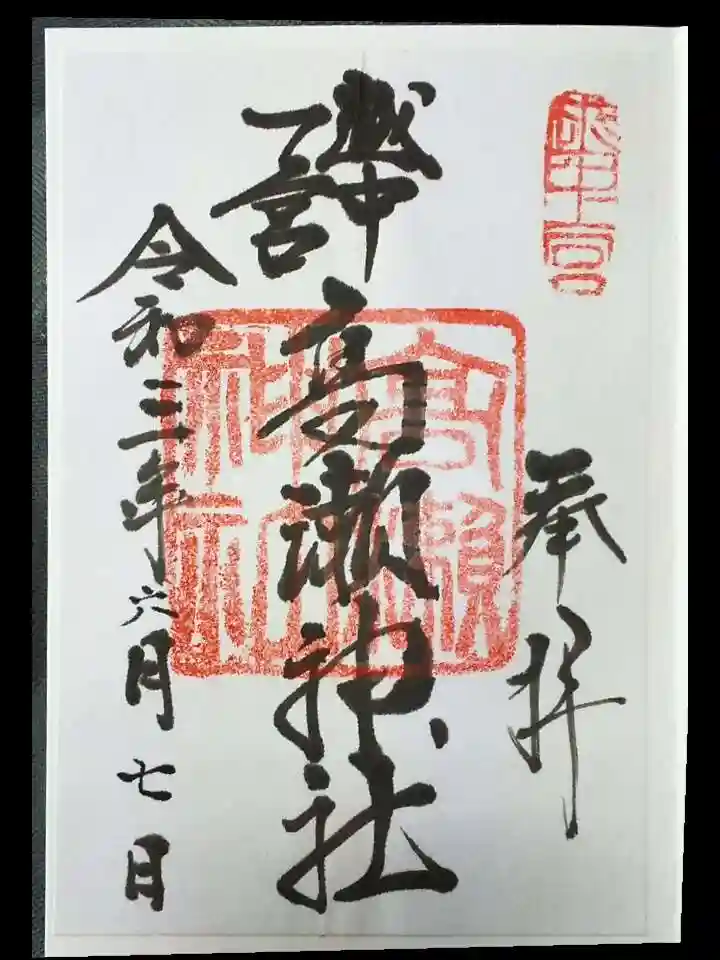 奉拝
越中
一宮
高瀬神社
令和三年六月七日
越中一宮
高瀬神社